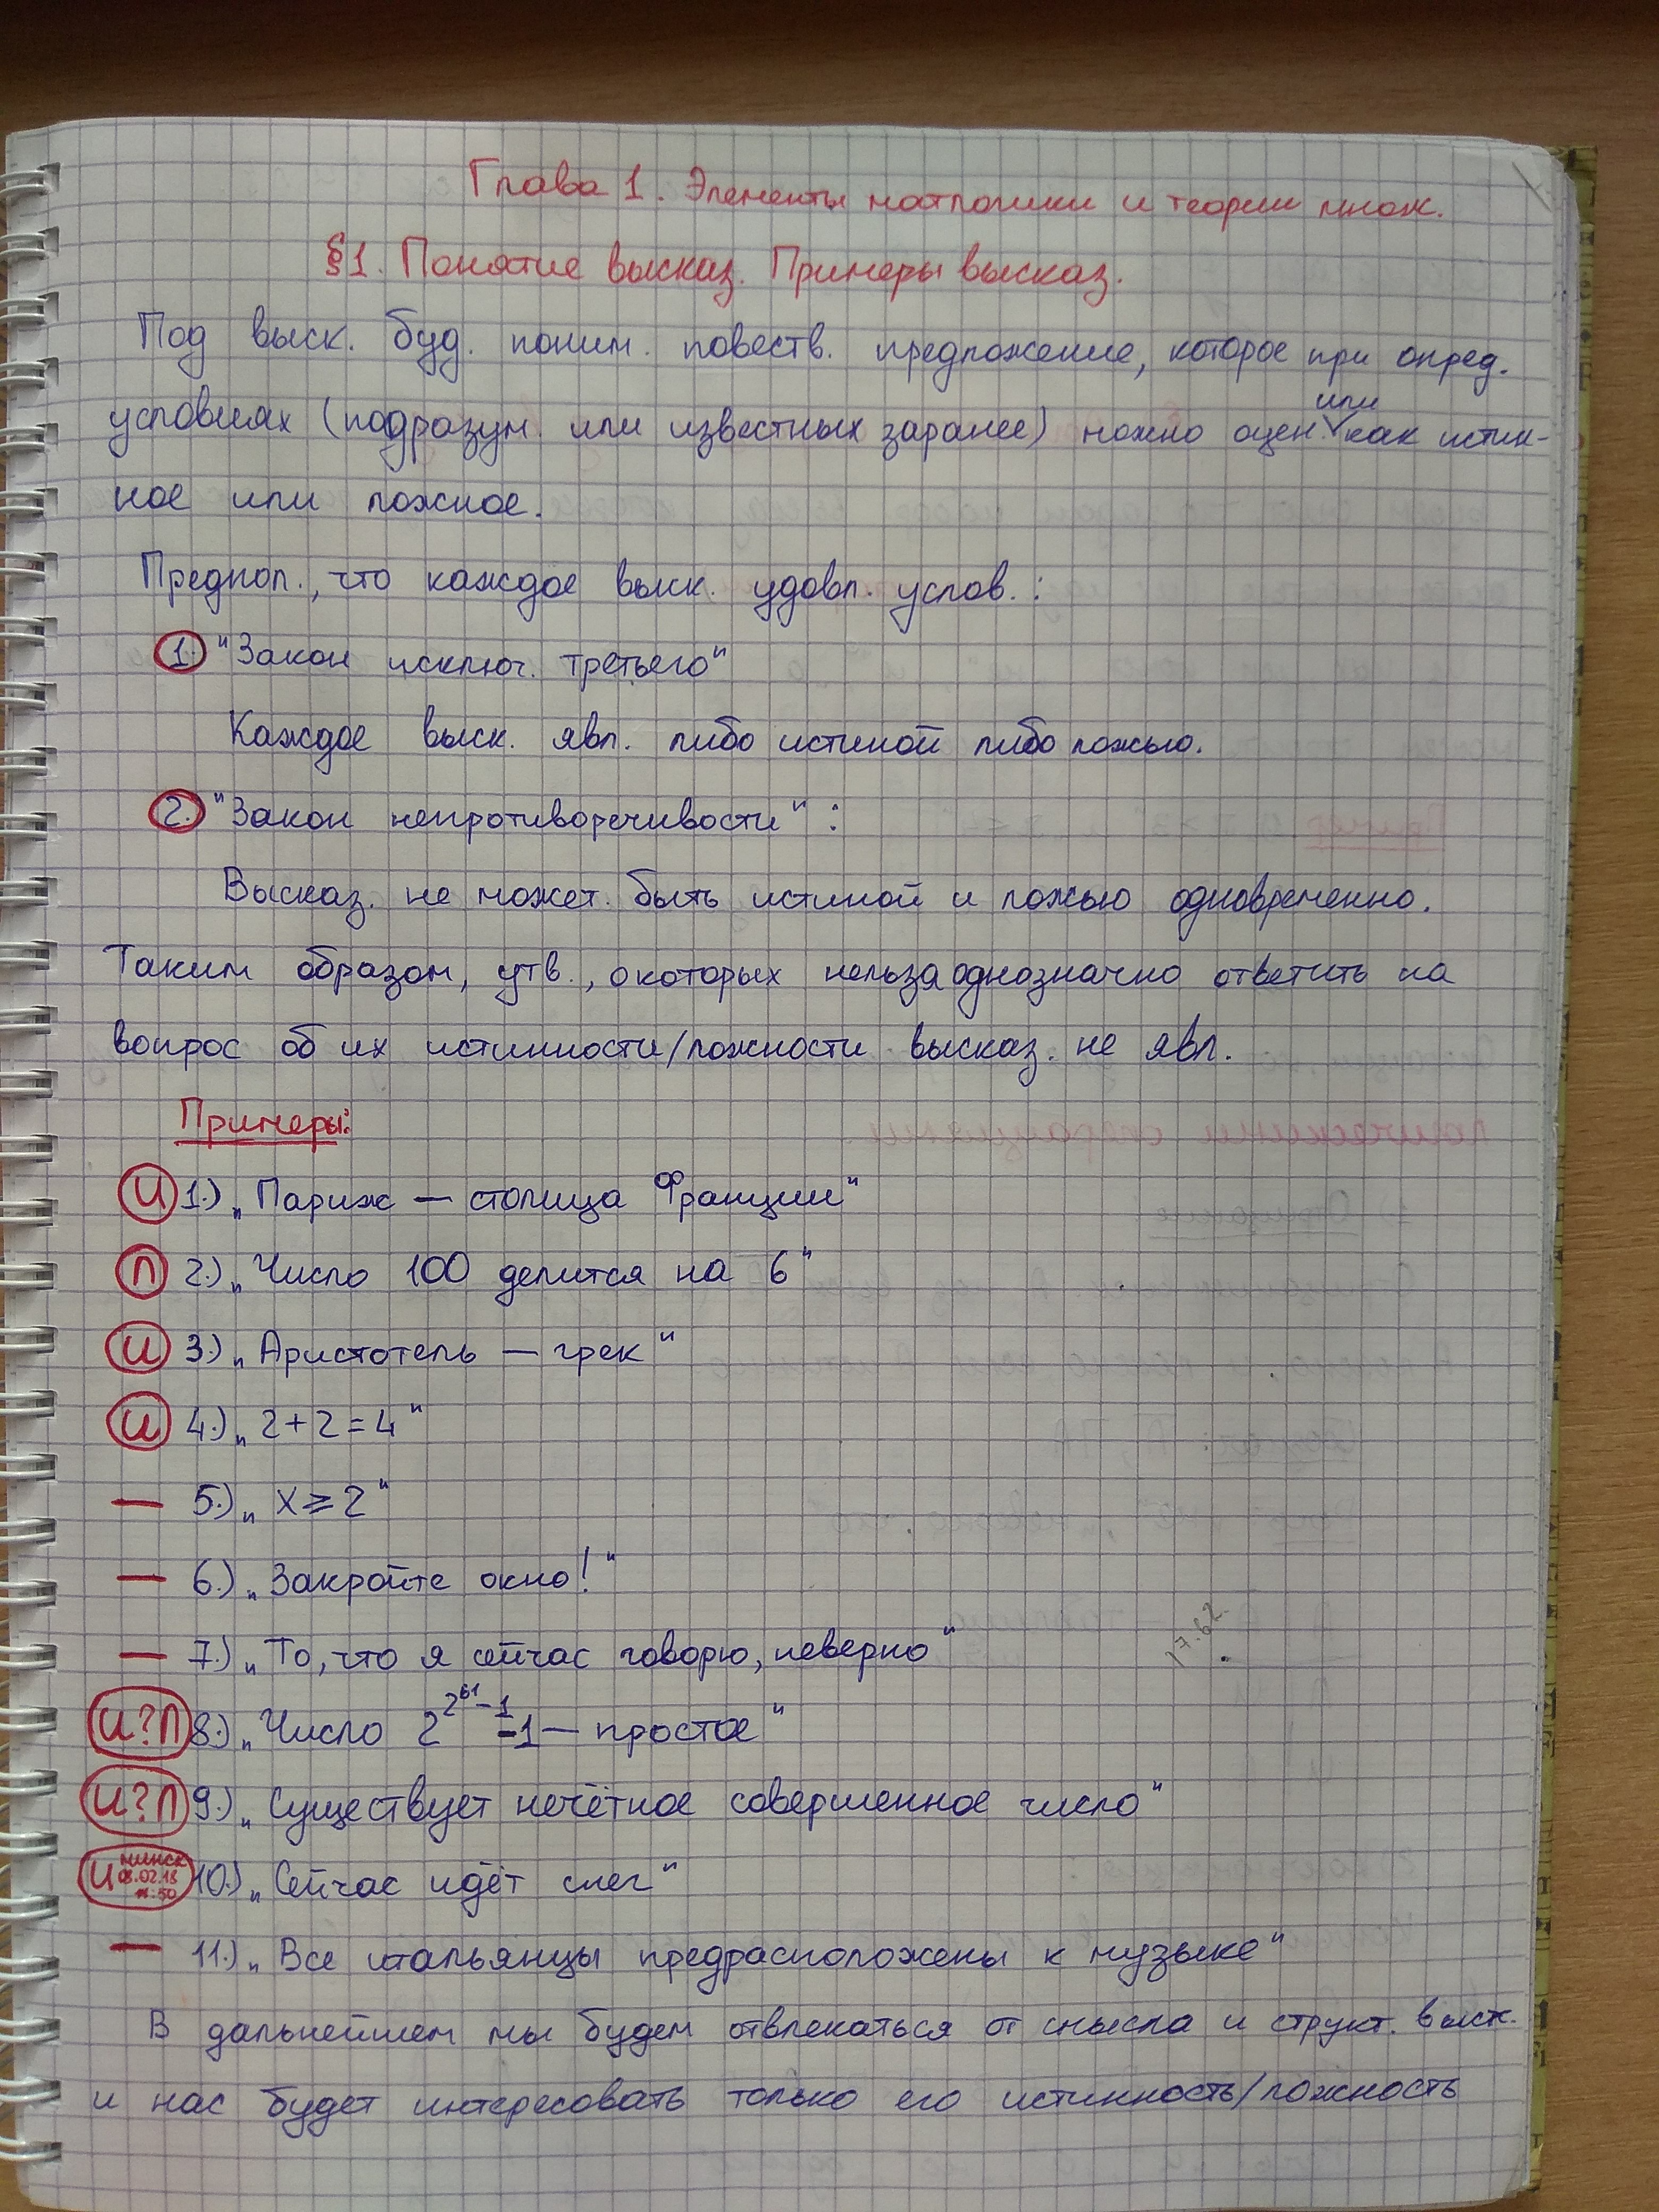 Глава 1. Элементы матлогики и теории множ.
§1. Понятие высказ. Примеры высказ.
Под выск. буд. поним. повеств. предложение, которое при опред.
или
условиях (подразум. или известных заранее) можно оцен. как истин-
ное или ложное.
Предпол., что каждое выск. удовл. услов.:
1. "Закон исключ. третьего"
Каждое выск. явл. либо истиной либо ложью.
2. "Закон непротиворечивости":
Высказ. не может быть истиной и ложью одновременно.
Таким образом, утв., о которых нельзя однозначно ответить на
вопрос об их истинности/ложности высказ. не явл.
Примеры:
И 1.) „Париж — столица Франции“
Л 2.) „Число 100 делится на 6“
И 3.) „Аристотель — грек“
И 4.) „2+2=4“
— 5.) „x ⩾ 2“
— 6.) „Закройте окно!“
— 7.) „То, что я сейчас говорю, неверно“
И?Л 8.) „Число 2^(2^61-1)-1 — простое“
И?Л 9.) „Существует нечётное совершенное число“
И минск 08.02.18 11:50 10.) „Сейчас идёт снег“
— 11.) „Все итальянцы предрасположены к музыке“
В дальнейшем мы будем отвлекаться от смысла и структ. выск.
и нас будет интересовать только его истинность/ложность
17.62.